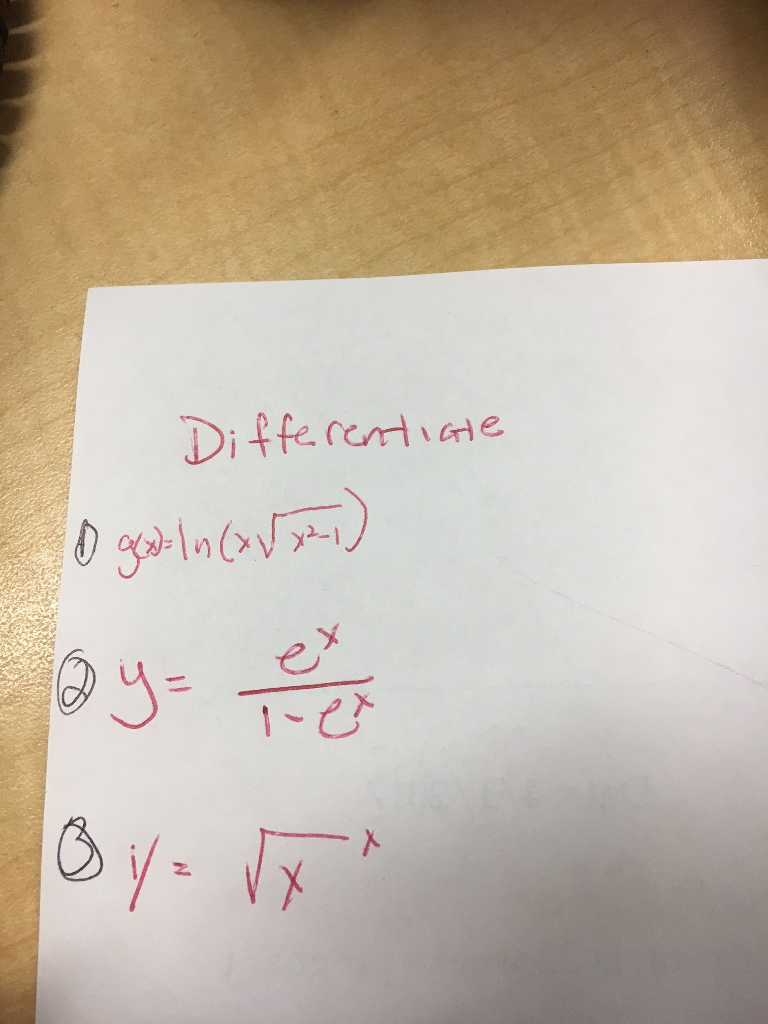 Differentiate
① g(x)=ln(x√(x²-1))
② y= e^x/(1-e^x)
③ y= √x^x